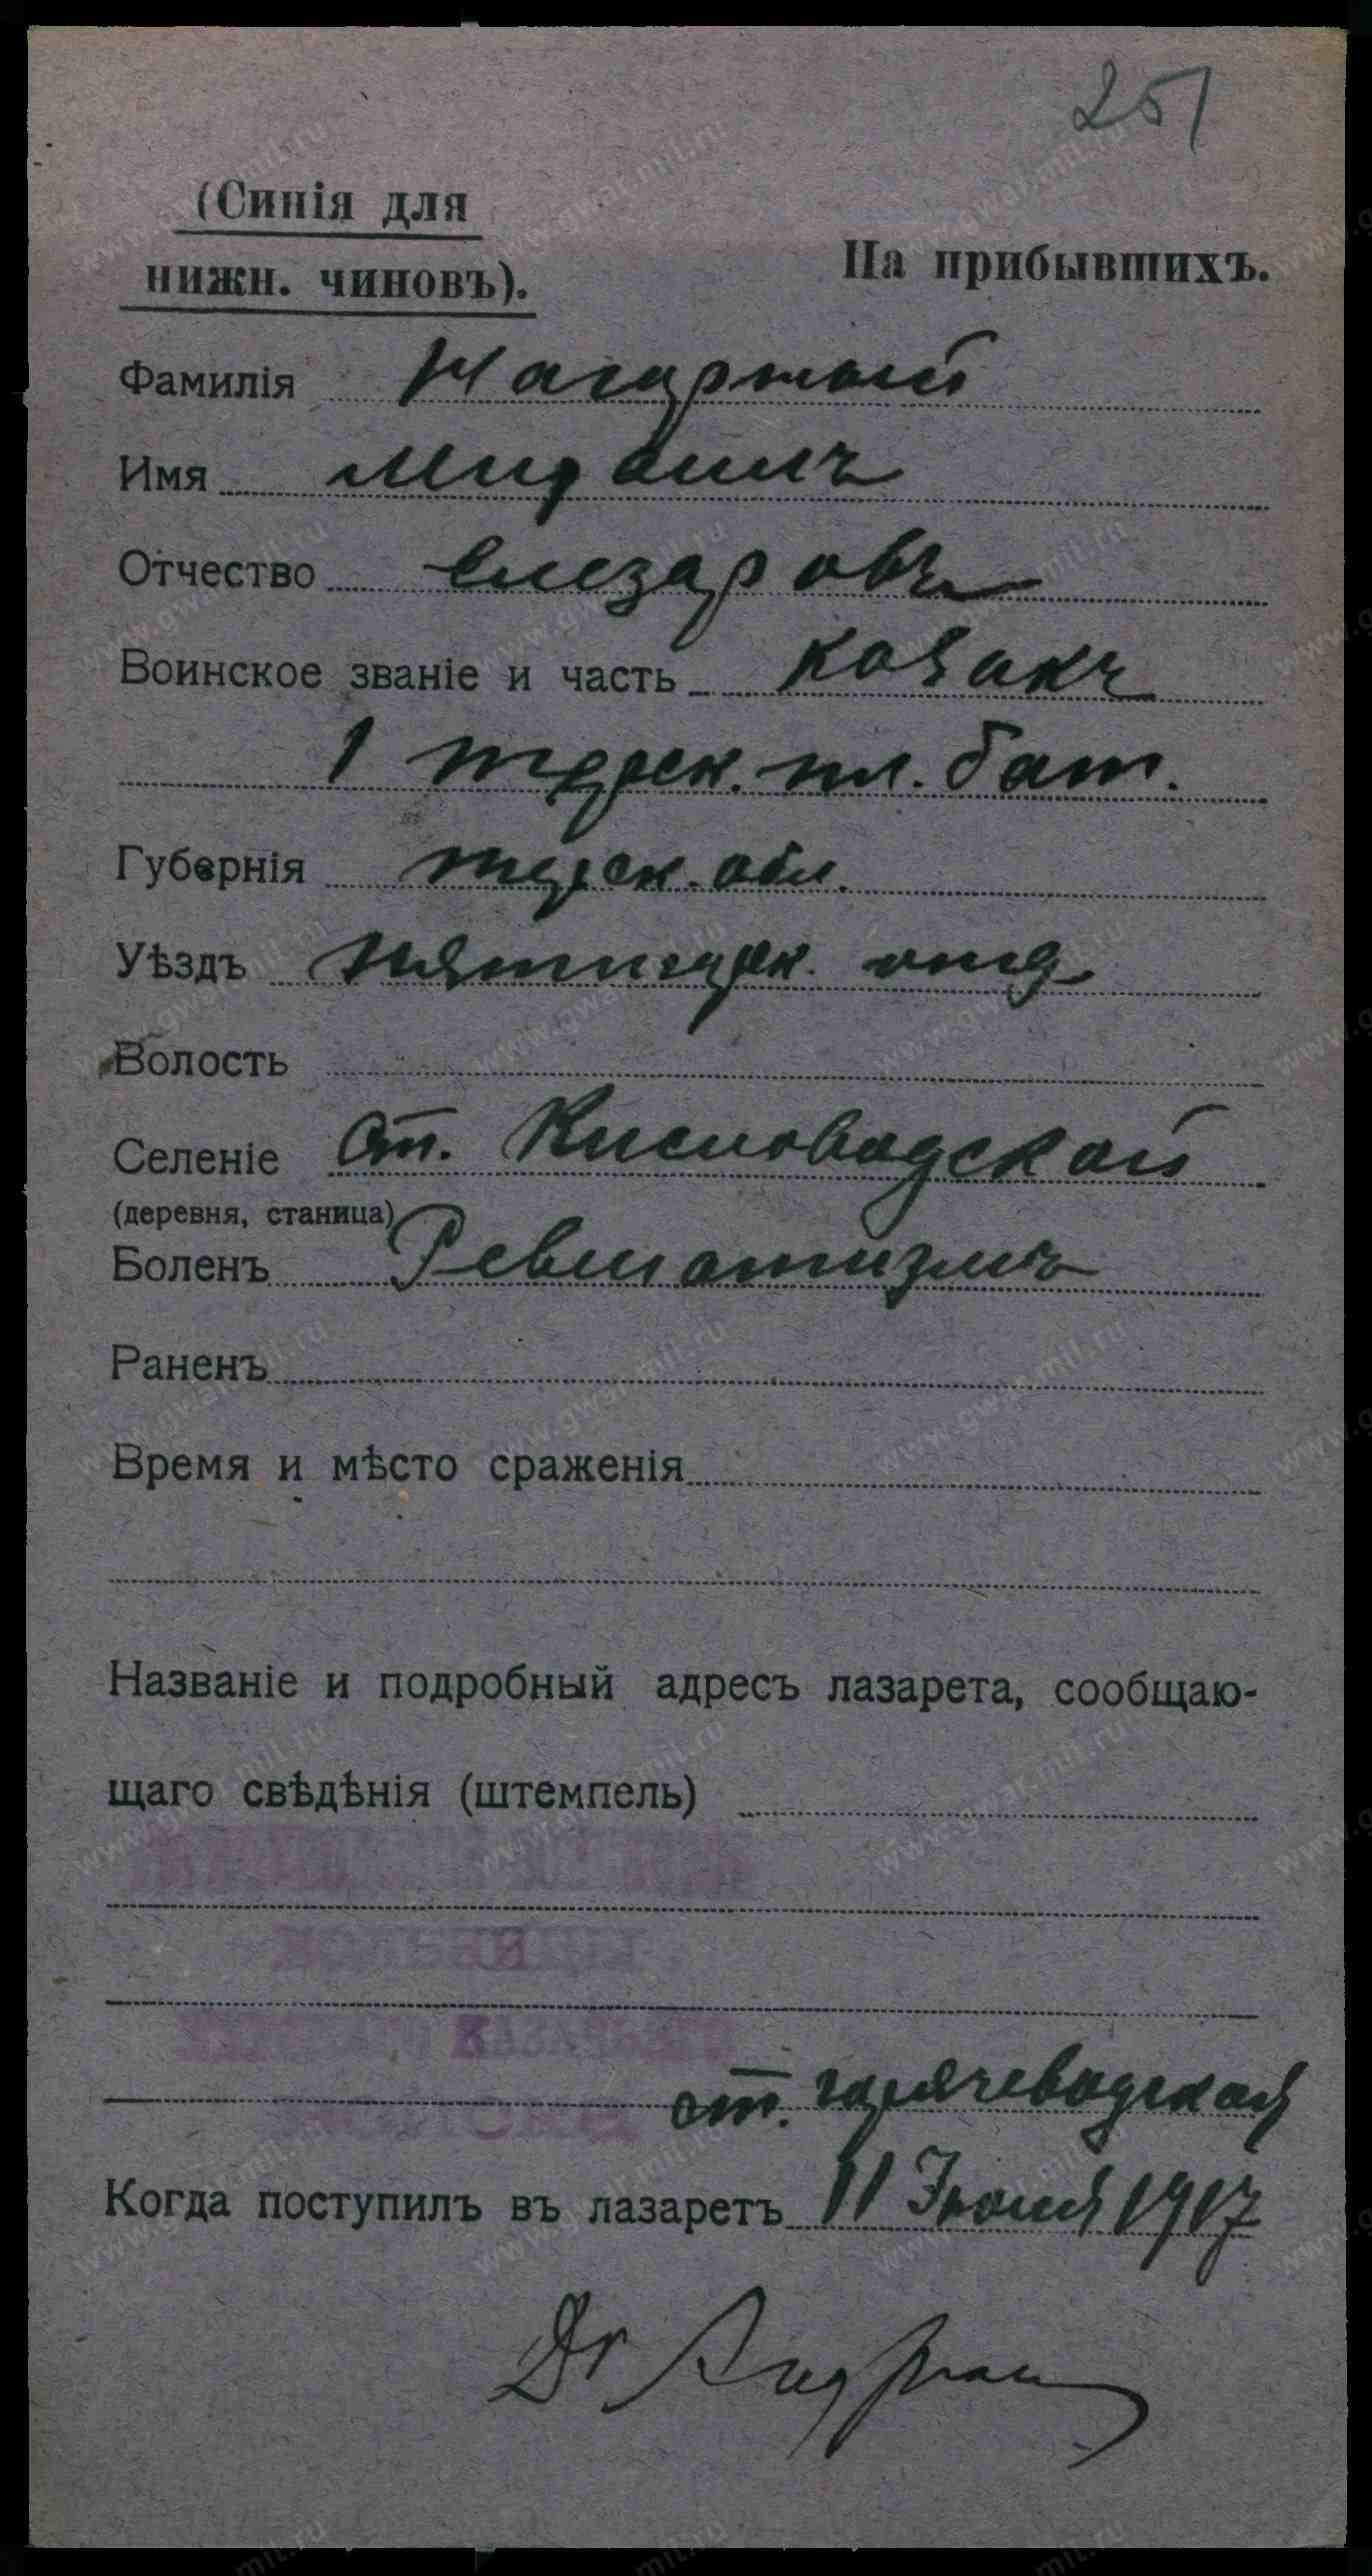 251
(Синія для
нижн. чиновъ).
На прибывшихъ.
Фамилія Нагорный
Имя Михаилъ
Отчество Елезаровъ
Воинское званіе и часть козакъ
1 терск. пл. бат.
Губернія терск. обл.
Уѣздъ пятигорск. отд
Волость
Селеніе ст. Кисловодской
(деревня, станица)
Боленъ Ревматизмъ
Раненъ
Время и мѣсто сраженія
Названіе и подробный адресъ лазарета, сообщаю-
щаго свѣдѣнія (штемпель)
ст. горячеводская
Когда поступилъ въ лазаретъ 11 Іюня 1917
Dr
www.gwar.mil.ru